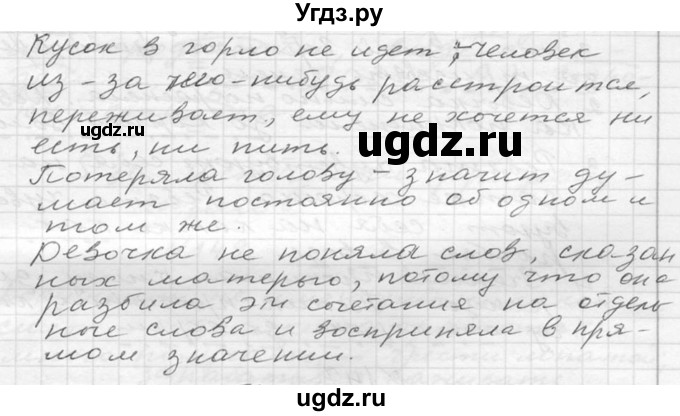 Угдз.ру
Кусок в горло не идет, - человек
из-за чего-нибудь расстроится,
переживает, ему не хочется ни
есть, ни пить.
Потеряла голову - значит ду-
мает постоянно об одном и
том же.
Девочка не поняла слов, сказан
ных матерью, потому что она
разбила эти сочетания на отдель
ные слова и восприняла в пря-
мом значении.
ugdz.ru
ugdz.ru
ugdz.ru
ugdz.ru
ugdz.ru